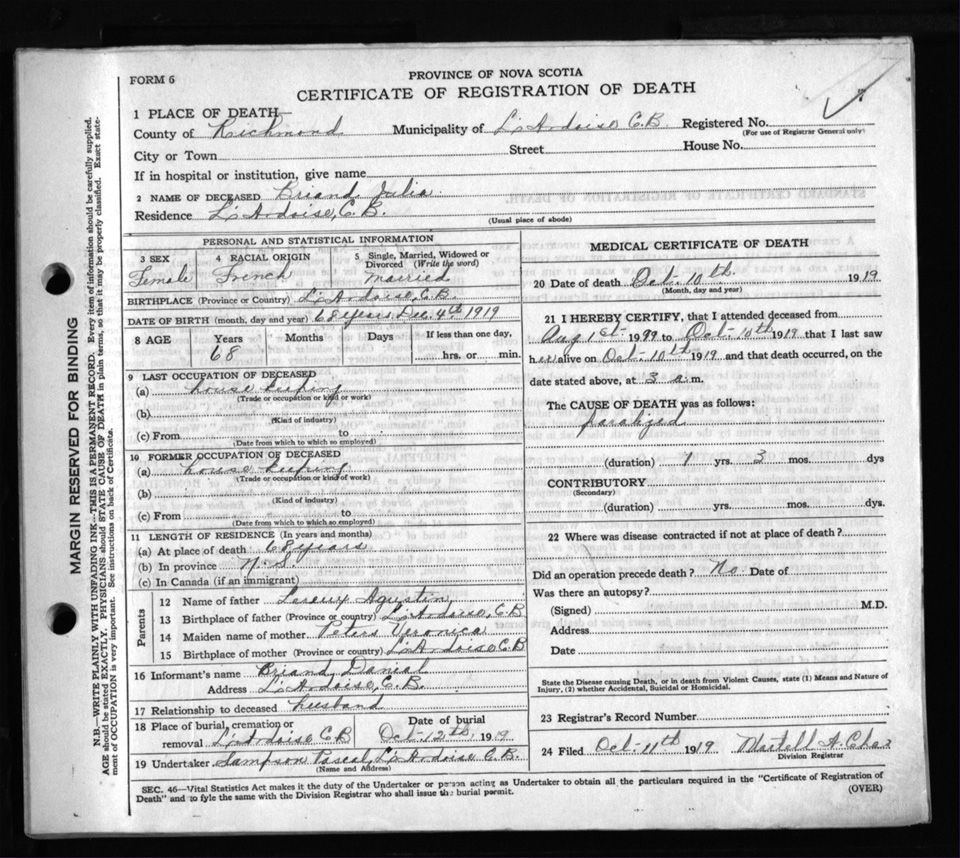 FORM 6
PROVINCE OF NOVA SCOTIA
CERTIFICATE OF REGISTRATION OF DEATH
1 PLACE OF DEATH—
County of Richmond Municipality of L'Ardoise C.B. Registered No.
(For use of Registrar General only)
City or Town Street House No.
If in hospital or institution, give name
2 NAME OF DECEASED Briand Julia
Residence L'Ardoise, C.B.
(Usual place of abode)
PERSONAL AND STATISTICAL INFORMATION
3 SEX 4 RACIAL ORIGIN 5 Single, Married, Widowed or Divorced (Write the word)
Female French Married
BIRTHPLACE (Province or Country) L'Ardoise, C.B.
DATE OF BIRTH (month, day and year) 68 years Dec. 4th 1919
8 AGE Years Months Days If less than one day,
68 hrs. or min.
9 LAST OCCUPATION OF DECEASED
(a) house keeping
(Trade or occupation or kind of work)
(b)
(Kind of industry)
(c) From to
(Date from which to which so employed)
10 FORMER OCCUPATION OF DECEASED
(a) house keeping
(Trade or occupation or kind of work)
(b)
(Kind of industry)
(c) From to
(Date from which to which so employed)
11 LENGTH OF RESIDENCE (In years and months)
(a) At place of death 68 years
(b) In province N.S.
(c) In Canada (if an immigrant)
Parents
12 Name of father Agustin
13 Birthplace of father (Province or country) L'Ardoise, C.B
14 Maiden name of mother Peters Veronica
15 Birthplace of mother (Province or country) L'Ardoise C B
16 Informant's name Briand Danial
Address L'Ardoise, C.B.
17 Relationship to deceased husband
18 Place of burial, cremation or removal L'Ardoise C B Date of burial Oct-12th, 1919
19 Undertaker Sampson Pascal, L'Ardoise C.B.
(Name and Address)
MEDICAL CERTIFICATE OF DEATH
20 Date of death Oct-10th. 1919
(Month, day and year)
21 I HEREBY CERTIFY, that I attended deceased from
Aug 1st 1999 to Oct-10th 1919 that I last saw
her alive on Oct-10th 1919 and that death occurred, on the
date stated above, at 3 a.m.
The CAUSE OF DEATH was as follows:
paralized
(duration) 1 yrs. 3 mos. dys
CONTRIBUTORY
(Secondary)
(duration) yrs. mos. dys.
22 Where was disease contracted if not at place of death?
Did an operation precede death? No Date of
Was there an autopsy?
(Signed) M.D.
Address
Date
State the Disease causing Death, or in death from Violent Causes, state (1) Means and Nature of Injury, (2) whether Accidental, Suicidal or Homicidal.
23 Registrar's Record Number
24 Filed Oct-11th 1919 Martell A Chas
Division Registrar
SEC. 46—Vital Statistics Act makes it the duty of the Undertaker or person acting as Undertaker to obtain all the particulars required in the "Certificate of Registration of
Death" and to fyle the same with the Division Registrar who shall issue the burial permit. (OVER)
MARGIN RESERVED FOR BINDING
N.B.—WRITE PLAINLY WITH UNFADING INK—THIS IS A PERMANENT RECORD. Every item of information should be carefully supplied.
AGE should be stated EXACTLY. PHYSICIANS should STATE CAUSE OF DEATH in plain terms, so that it may be properly classified. Exact state-
ment of OCCUPATION is very important. See instructions on back of Certificate.